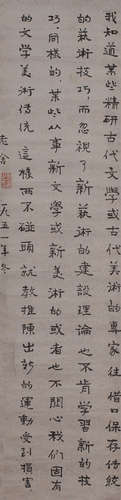 我知道某些精研古代文学与古代美术的专家往往借口保存古代
的艺术技巧而忽视了新艺术的建设理论也不肯学习新的技
巧同样的某些从事新文学或新美术的或者也不关心我们固有
的文学美术传统这样两不碰头就教推陈出新的运动受到损害
老舍 一九五一年冬